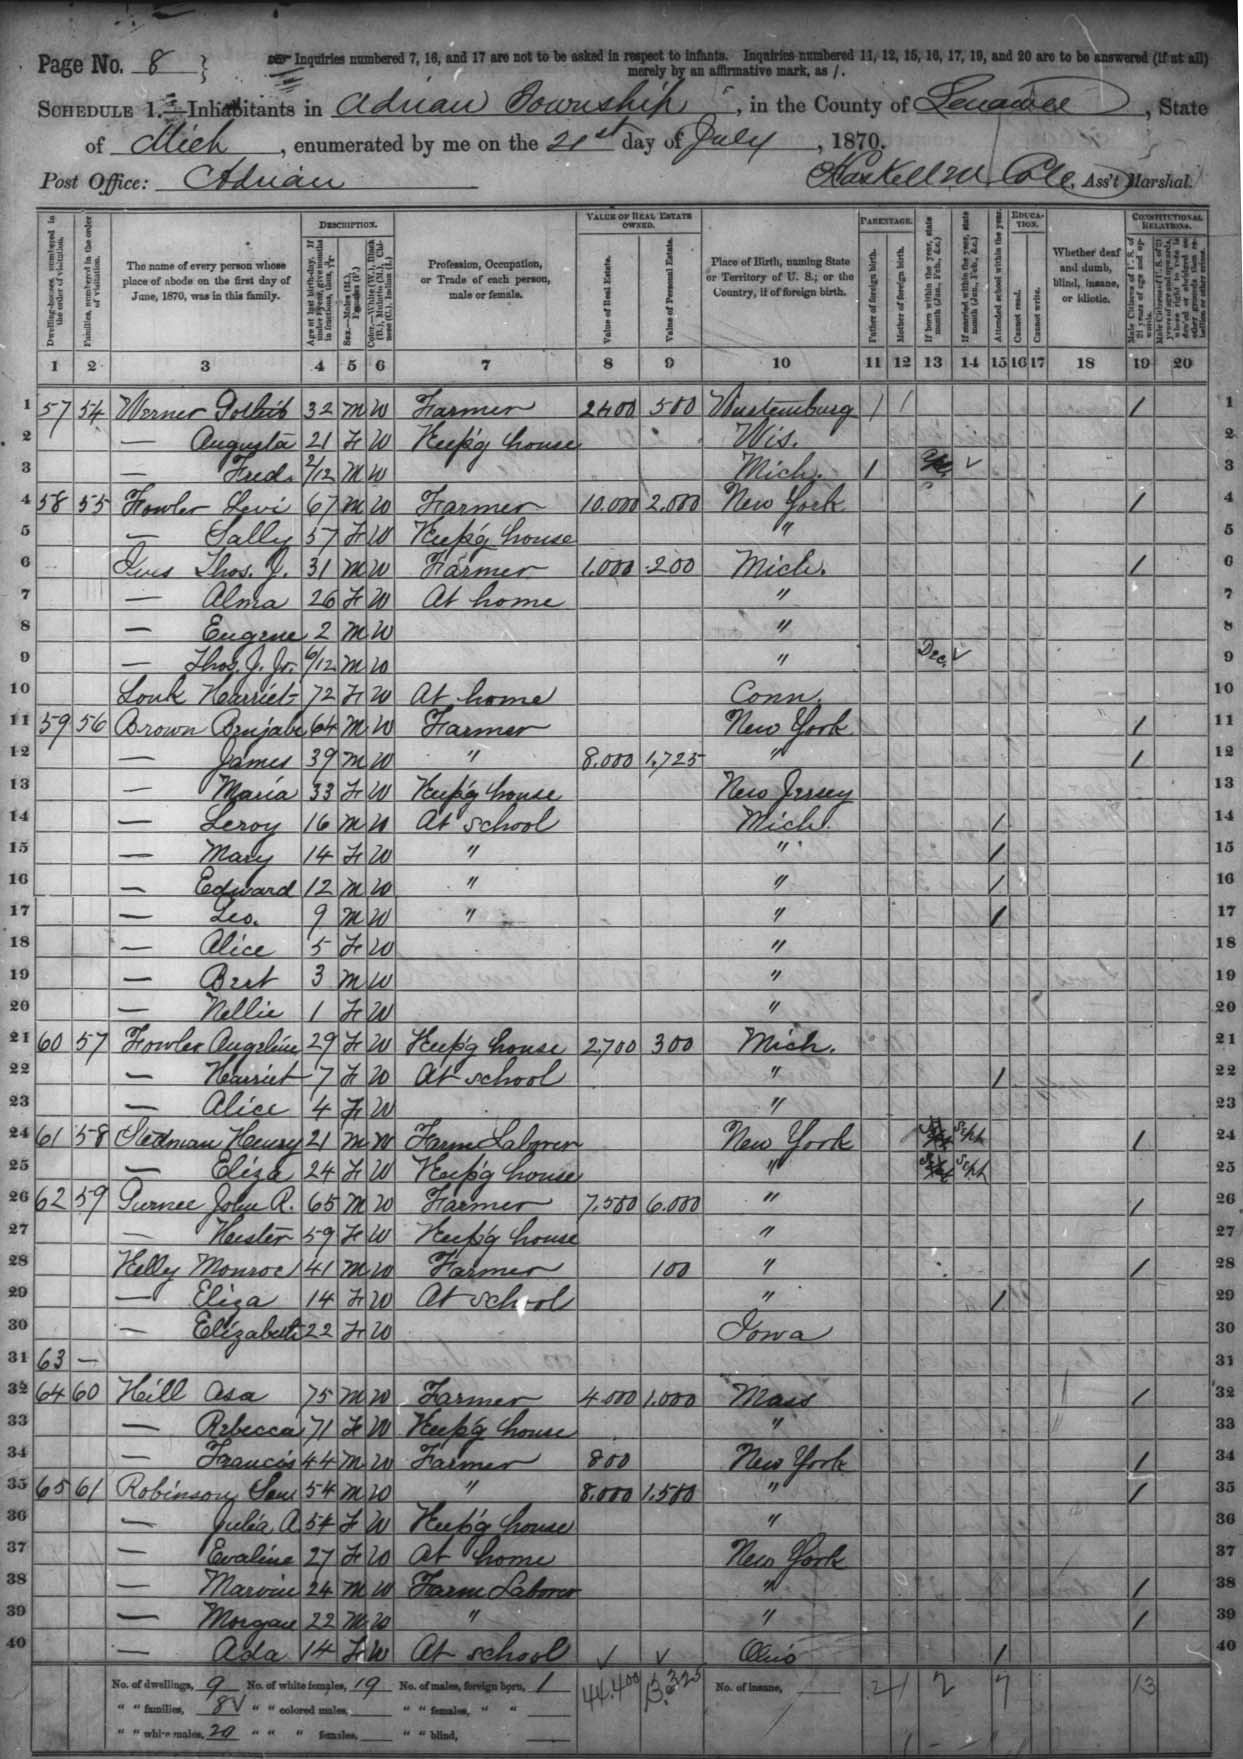 Page No. 8
Inquiries numbered 7, 16, and 17 are not to be asked in respect to infants. Inquiries numbered 11, 12, 15, 16, 17, 19, and 20 are to be answered (if at all)
merely by an affirmative mark, as /.
SCHEDULE 1.—Inhabitants in Adrian Township, in the County of Lenawee, State
of Mich, enumerated by me on the 21st day of July, 1870.
Post Office: Adrian Haskell M. Cole, Ass't Marshal.
Dwelling-houses, numbered in the order of visitation.
Families, numbered in the order of visitation.
The name of every person whose place of abode on the first day of June, 1870, was in this family.
DESCRIPTION.
Age at last birth-day. If under 1 year, give months in fractions, thus, 3/12.
Sex.—Males (M.), Females (F.)
Color.—White (W.), Black (B.), Mulatto (M.), Chinese (C.), Indian (I.)
Profession, Occupation, or Trade of each person, male or female.
VALUE OF REAL ESTATE OWNED.
Value of Real Estate.
Value of Personal Estate.
Place of Birth, naming State or Territory of U. S.; or the Country, if of foreign birth.
PARENTAGE.
Father of foreign birth.
Mother of foreign birth.
If born within the year, state month (Jan., Feb., &c.)
If married within the year, state month (Jan., Feb., &c.)
Attended school within the year.
EDUCATION.
Cannot read.
Cannot write.
Whether deaf and dumb, blind, insane, or idiotic.
CONSTITUTIONAL RELATIONS.
Male Citizens of U. S. of 21 years of age and upwards.
1 2 3 4 5 6 7 8 9 10 11 12 13 14 15 16 17 18 19 20
1 57 54 Werner Gotleib 32 M W Farmer 2400 500 Wurtemburg / / / 1
2 — Augusta 21 F W Keep'g house Wis. 2
3 — Fred. 2/12 M W Mich. / ✓ 3
4 58 55 Fowler Levi 67 M W Farmer 10.000 2.000 New York / 4
5 — Sally 57 F W Keep'g house " 5
6 Ives Thos. J. 31 M W Farmer 1.000 200 Mich. / 6
7 — Alma 26 F W At home " 7
8 — Eugene 2 M W " 8
9 — Thos. J. Jr. 6/12 M W " Dec. ✓ 9
10 Louk Harriet 72 F W At home Conn. 10
11 59 56 Brown Benjabe 64 M W Farmer New York / 11
12 — James 39 M W " 8.000 1.725 " / 12
13 — Maria 33 F W Keep'g house New Jersey 13
14 — Leroy 16 M W At school Mich. / 14
15 — Mary 14 F W " " / 15
16 — Edward 12 M W " " / 16
17 — Geo. 9 M W " " / 17
18 — Alice 5 F W " 18
19 — Bert 3 M W " 19
20 — Nellie 1 F W " 20
21 60 57 Fowler Angeline 29 F W Keep'g house 2700 300 Mich. 21
22 — Harriet 7 F W At school " / 22
23 — Alice 4 F W " 23
24 61 58 Stedman Henry 21 M W Farm Laborer New York Sept / 24
25 — Eliza 24 F W Keep'g house " Sept 25
26 62 59 Gurnee John R. 65 M W Farmer 7.500 6.000 " / 26
27 — Hester 59 F W Keep'g house " 27
28 Kelly Monroe 41 M W Farmer 100 " / 28
29 — Eliza 14 F W At school " / 29
30 — Elizabeth 22 F W Iowa 30
31 63 — 31
32 64 60 Hill Asa 75 M W Farmer 4.000 1.000 Mass / 32
33 — Rebecca 71 F W Keep'g house " 33
34 — Francis 44 M W Farmer 800 New York / 34
35 65 61 Robinson Saml 54 M W " 8.000 1.500 " / 35
36 — Julia A 54 F W Keep'g house " 36
37 — Evaline 27 F W At home New York 37
38 — Marvin 24 M W Farm Laborer " / 38
39 — Morgan 22 M W " " / 39
40 — Ada 14 F W At school ✓ ✓ Ohio / 40
No. of dwellings, 9 No. of white females, 19 No. of males, foreign born, 1 44.400 No. of insane, 2 1 2 7 13
" " families, 8 ✓ " " colored males, " " females, " "
" " white males, 20 " " " females, " " blind,